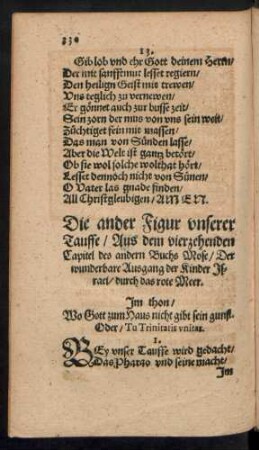 230
13.
Gib lob vnd ehr Gott deinem Herrn/
Der mit sanfftmut lesset regiern/
Den heilign Geist mit trewen/
Vns teglich zu vernewen/
Er gönnet auch zur busse zeit/
Sein zorn der mus von vns sein weit/
Züchtiget fein mit massen/
Das man von Sünden lasse/
Aber die Welt ist gantz betört/
Ob sie wol solche wolthat hört/
Lesset dennoch nicht von Sünen/
O Vater las gnade finden/
All Christgleubigen/ AMEN.
Die ander Figur vnserer
Tauffe/ Aus dem vierzehenden
Capitel des andern Buchs Mose/ Der
wunderbare Ausgang der Kinder Iß-
rael/ durch das rote Meer.
Im thon/
Wo Gott zum Haus nicht gibt sein gunst.
Oder/ Tu Trinitatis vnitas.
1.
BEy vnser Tauffe wird gedacht/
Das Pharao vnd seine macht/
Im